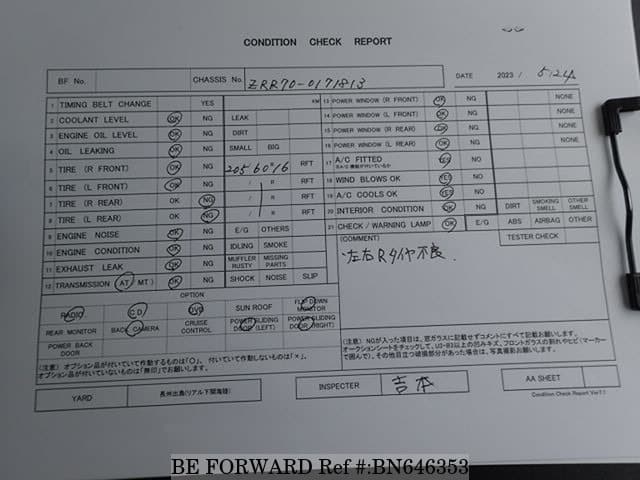 CONDITION CHECK REPORT
BF No. CHASSIS No. ZRR70-0171813 DATE 2023 / 5.24
1 TIMING BELT CHANGE YES KM 13 POWER WINDOW (R FRONT) OK NG NONE
2 COOLANT LEVEL OK NG LEAK 14 POWER WINDOW (L FRONT) OK NG NONE
3 ENGINE OIL LEVEL OK NG DIRT 15 POWER WINDOW (R REAR) OK NG NONE
4 OIL LEAKING OK NG SMALL BIG 16 POWER WINDOW (L REAR) OK NG NONE
5 TIRE (R FRONT) OK NG 205 / 60 R 16 RFT 17 A/C FITTED YES NO
6 TIRE (L FRONT) OK NG / R RFT 18 WIND BLOWS OK YES NO
7 TIRE (R REAR) OK NG / R RFT 19 A/C COOLS OK YES NO
8 TIRE (L REAR) OK NG / R RFT 20 INTERIOR CONDITION OK NG DIRT SMOKING SMELL OTHER SMELL
9 ENGINE NOISE OK NG E/G OTHERS 21 CHECK / WARNING LAMP OK E/G ABS AIRBAG OTHER
10 ENGINE CONDITION OK NG IDLING SMOKE (COMMENT) TESTER CHECK
11 EXHAUST LEAK OK NG MUFFLER RUSTY MISSING PARTS 左右Rタイヤ不良.
12 TRANSMISSION (AT MT) OK NG SHOCK NOISE SLIP
OPTION
RADIO CD DVD SUN ROOF FLIP DOWN MONITOR
REAR MONITOR BACK CAMERA CRUISE CONTROL POWER SLIDING DOOR (LEFT) POWER SLIDING DOOR (RIGHT)
POWER BACK DOOR
(注意) オプション品が付いていて作動するものは「○」、付いていて作動しないものは「×」、
オプション品が付いていないものは「無印」でお願いします。
(注意) NGが入った項目は、窓ガラスに記載せずコメントにすべて記載お願いします。
オークションシートをチェックして、U2・B3以上の凹みキズ、フロントガラスの割れやヒビ(マーカー
で囲んで)、その他目立つ破損部分があった場合は、写真撮影お願いします。
YARD 長州出島(リアル下関海陸) INSPECTER 吉本 AA SHEET
Condition Check Report Ver7.1
BE FORWARD Ref #:BN646353